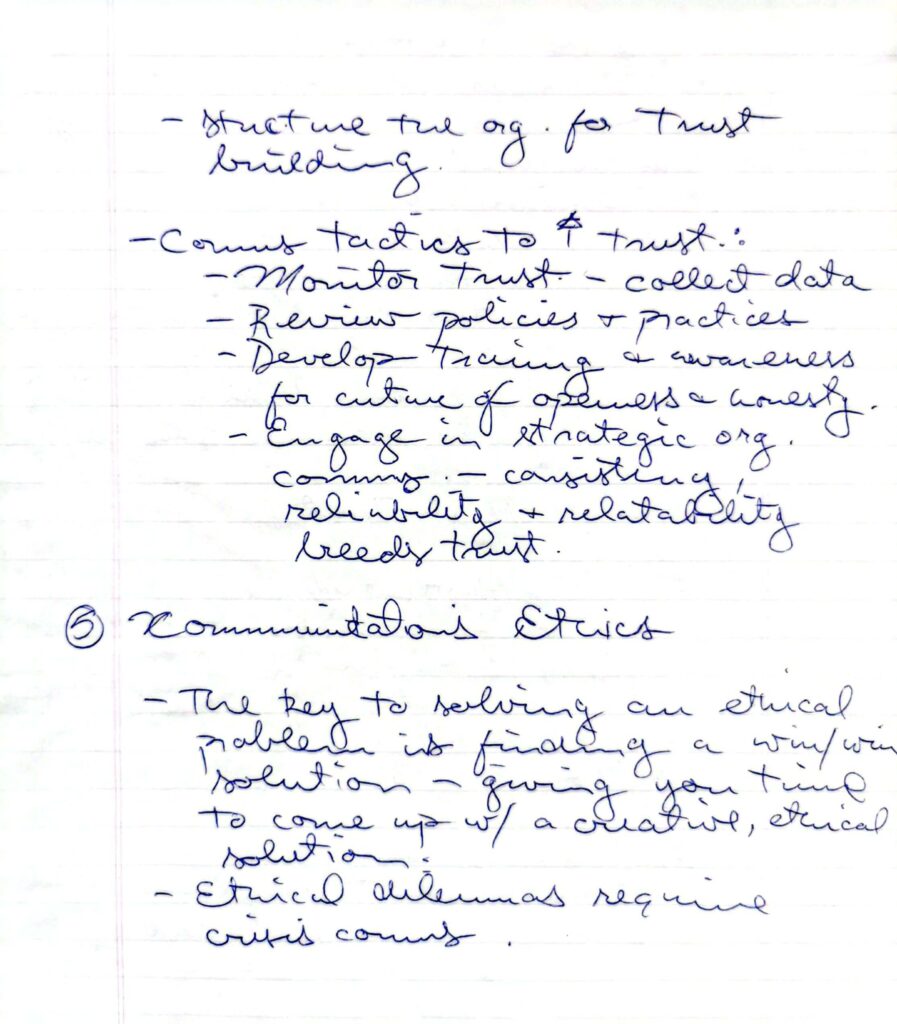 - Structure the org. for Trust
building.
- Comms tactics to ↑ trust.:
- Monitor trust - collect data
- Review policies + practices
- Develop training & awareness
for culture of openness & honesty.
- Engage in strategic org.
comms. - consisting,
reliability + relatability
breeds trust.
⑤ Communications Ethics
- The key to solving an ethical
problem is finding a win/win
solution - giving you time
to come up w/ a creative, ethical
solution.
- Ethical dilemmas require
crisis comms.